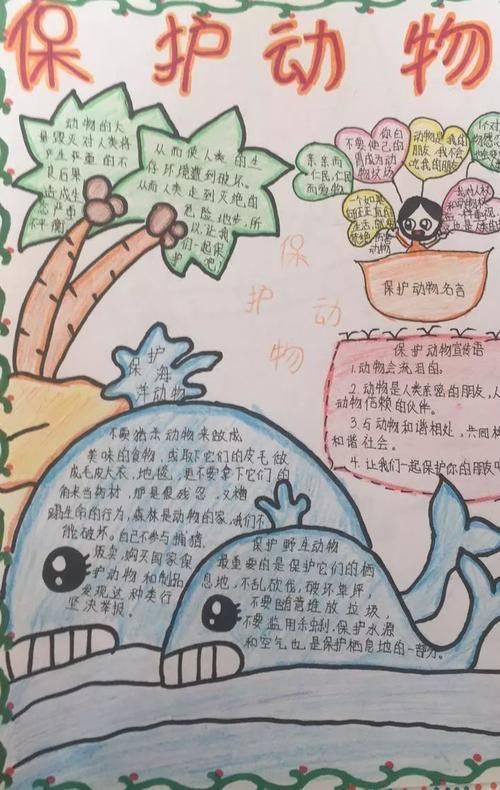 保护动物
动物的大
量毁灭对人类将
产生严重的不
良后果
造成生
态严重
不平衡
从而使人类的生
存环境遭到破坏。
从而人类走到灭绝的
危险地步,所
以,让我
们一起保
护吧
保
护
动
物
亲亲而
仁民,仁民
而爱物
不要
你自己的
胃成为动
物坟场
动物是我的
朋友,我不会
吃我的朋友
保护动物名言
保护动物宣传语
1.动物会流泪的。
2.动物是人类亲密的朋友,人
动物信赖的伙伴。
3.与动物和谐相处,共同
和谐社会。
4.让我们一起保护你的朋友
保护
海
洋动物
不要猎杀动物来做成
美味的食物,或取下它们的皮毛做
成毛皮大衣,地毯,更不要拿下它们的
角来当药材,那是很残忍,又糟
蹋生命的行为,森林是动物的家,我们不
能破坏。自己不参与捕猎,
贩卖,购买国家保
护动物和制品
发现这种类行
坚决举报。
保护野生动物
最重要的是保护它们的栖
息地,不乱砍伐,破坏草坪,
不要随意堆放垃圾,
不要滥用杀虫剂.保护水源
和空气也是保护栖息地的一部分。